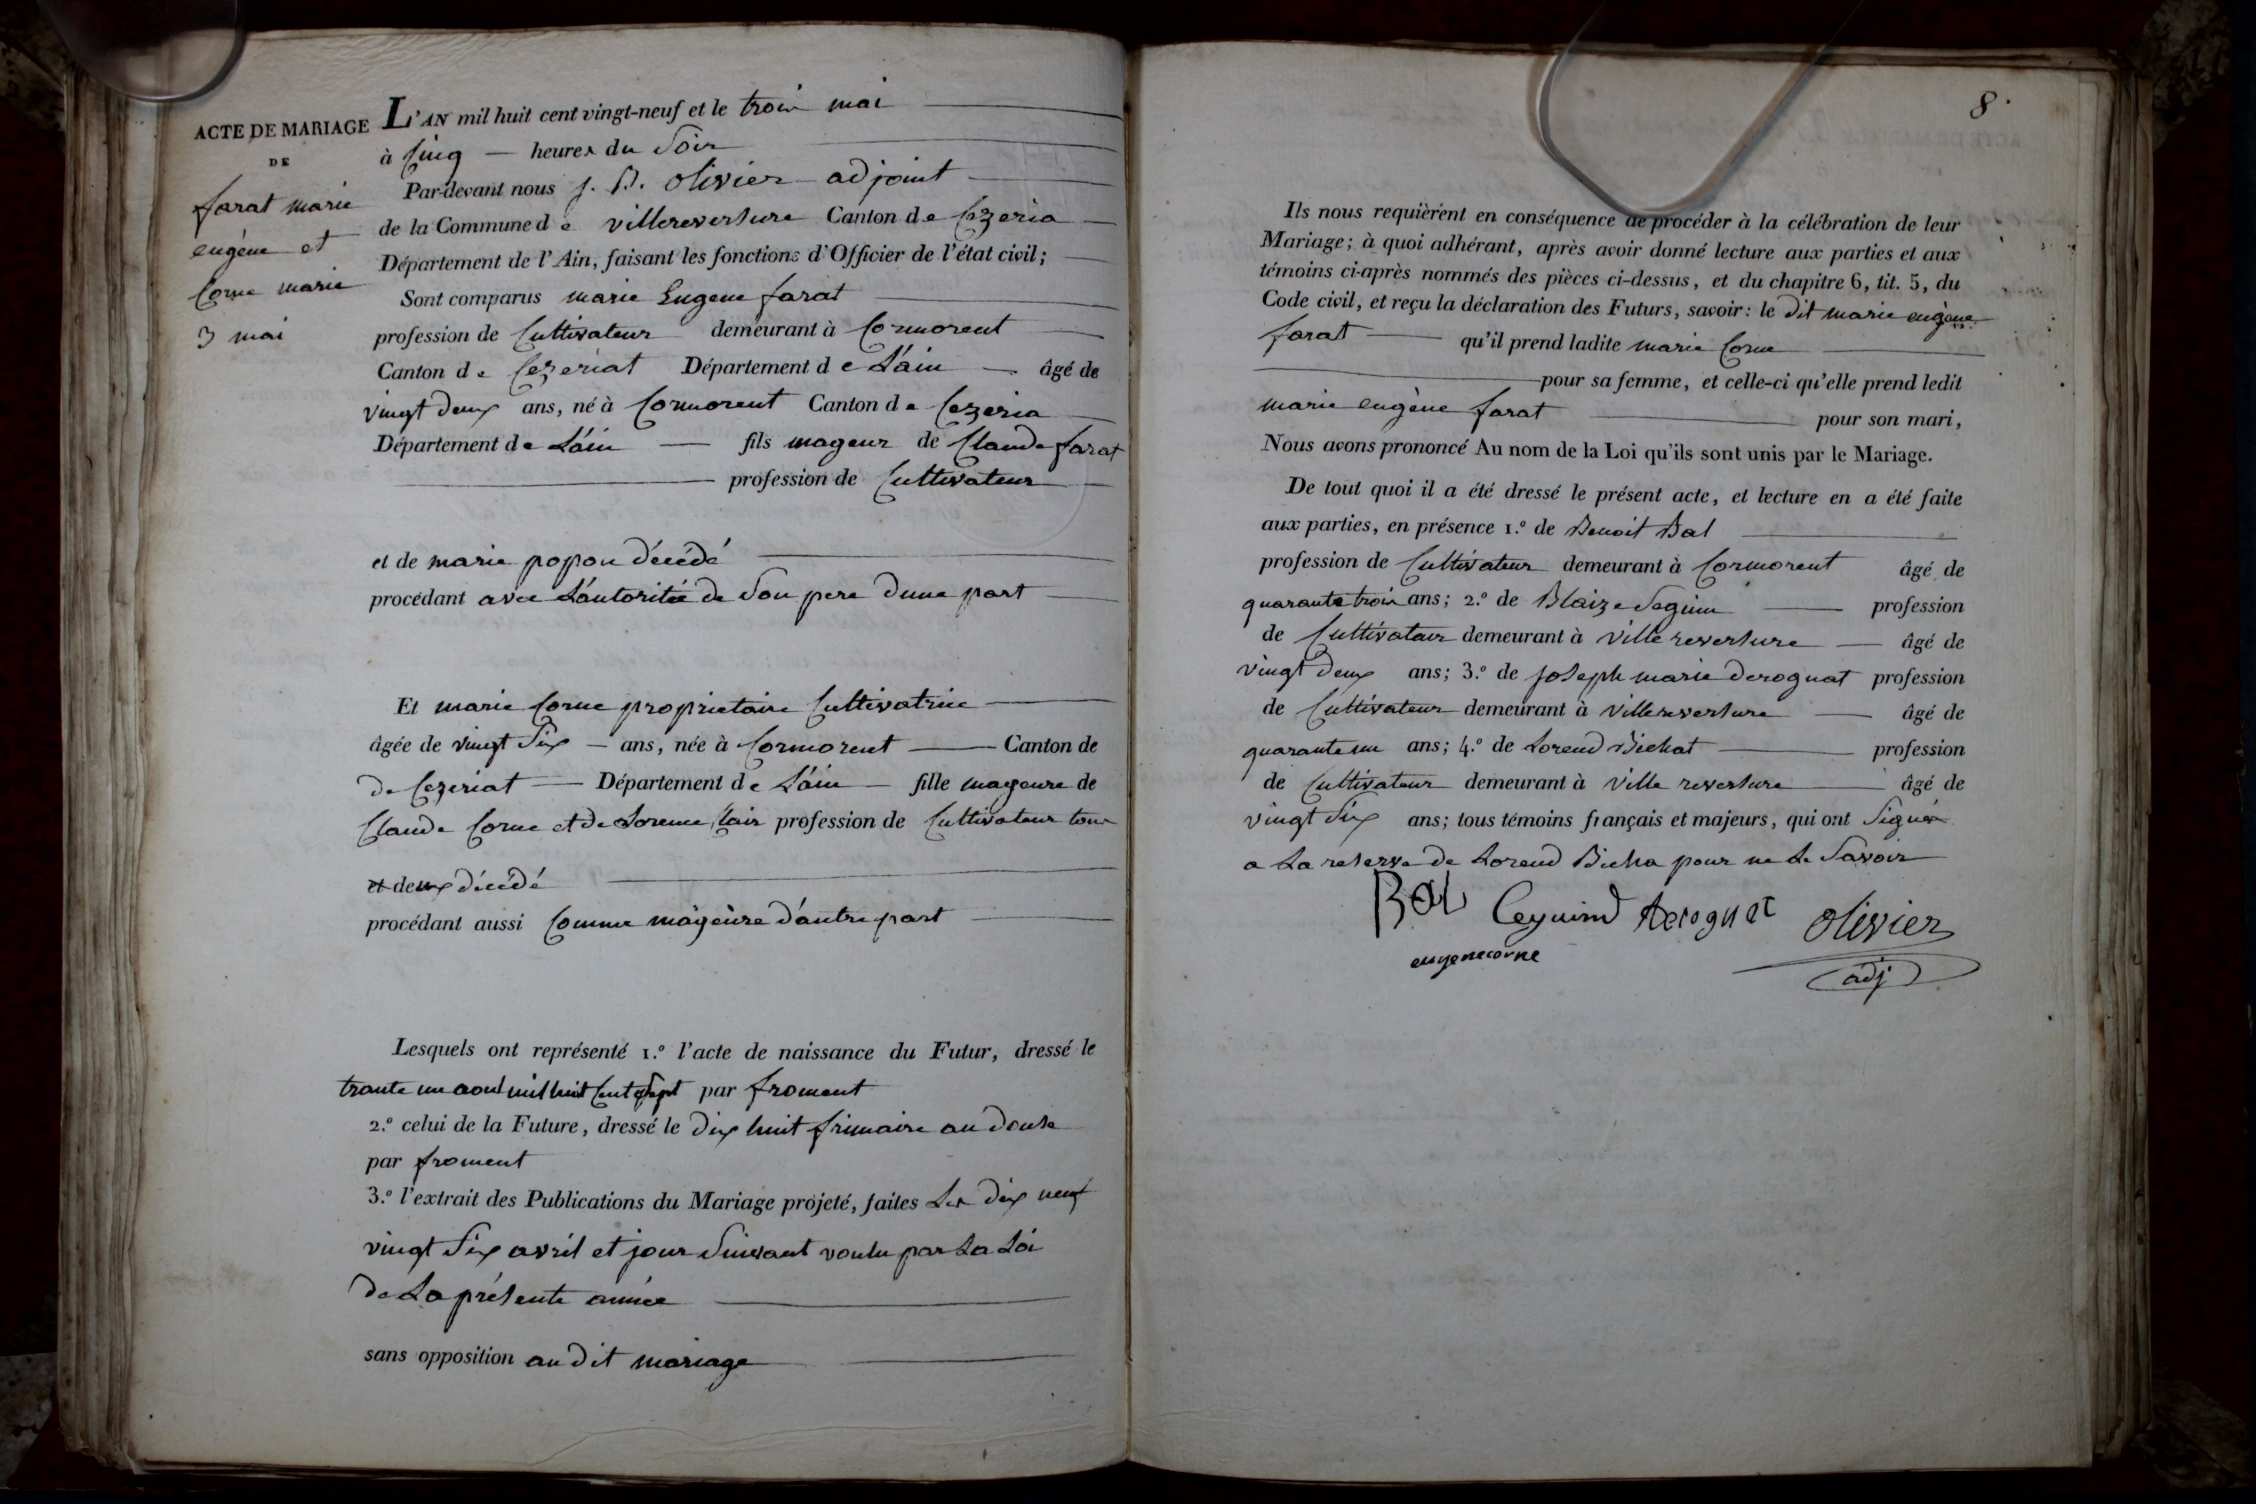 ACTE DE MARIAGE
DE
farat marie
eugène et
Corne marie
3 mai
L'AN mil huit cent vingt-neuf et le trois mai
à Cinq heures du Soir
Par-devant nous J. B. Olivier adjoint
de la Commune de villereversure Canton de Cezeria
Département de l'Ain, faisant les fonctions d'Officier de l'état civil;
Sont comparus marie Eugene farat
profession de Cultivateur demeurant à Cormorent
Canton de Cezeriat Département de L'áin âgé de
vingt deux ans, né à Cormorent Canton de Cezeria
Département de L'áin fils mageur de Claude farat
profession de Cultivateur
et de marie popon décédé
procédant avec L'autoritée de Son pere dune part
Et marie Corne proprietaire Cultivatrice
âgée de vingt Six ans, née à Cormorent Canton de
de Cezeriat Département de L'áin fille mageure de
Claude Corne et de Lorence Clair profession de Cultivateur tous
et deux décédé
procédant aussi Comme mageure d'autre part
Lesquels ont représenté 1.º l'acte de naissance du Futur, dressé le
trante un aout mil huit Cent Sept par froment
2.º celui de la Future, dressé le dix huit frimaire an douse
par froment
3.º l'extrait des Publications du Mariage projeté, faites Les dix neuf
vingt Six avril et jour Suivant voulu par La Loi
de La présente année
sans opposition au dit mariage
8.
Ils nous requièrent en conséquence de procéder à la célébration de leur
Mariage; à quoi adhérant, après avoir donné lecture aux parties et aux
témoins ci-après nommés des pièces ci-dessus, et du chapitre 6, tit. 5, du
Code civil, et reçu la déclaration des Futurs, savoir: le dit marie eugène
farat qu'il prend ladite marie Corne
pour sa femme, et celle-ci qu'elle prend ledit
marie eugène farat pour son mari,
Nous avons prononcé Au nom de la Loi qu'ils sont unis par le Mariage.
De tout quoi il a été dressé le présent acte, et lecture en a été faite
aux parties, en présence 1.º de Benoit Bal
profession de Cultivateur demeurant à Cormorent âgé de
quarante trois ans; 2.º de Blaize Seguin profession
de Cultivateur demeurant à Ville reversure âgé de
vingt deux ans; 3.º de Joseph marie derognat profession
de Cultivateur demeurant à Villereversure âgé de
quarante un ans; 4.º de Lorend Bichat profession
de Cultivateur demeurant à Ville reversure âgé de
vingt Six ans; tous témoins français et majeurs, qui ont Signés
a La reserve de Lorend Bicha pour ne Le Savoir
Bal Ceguind derognat Olivier
eugenecorne adj